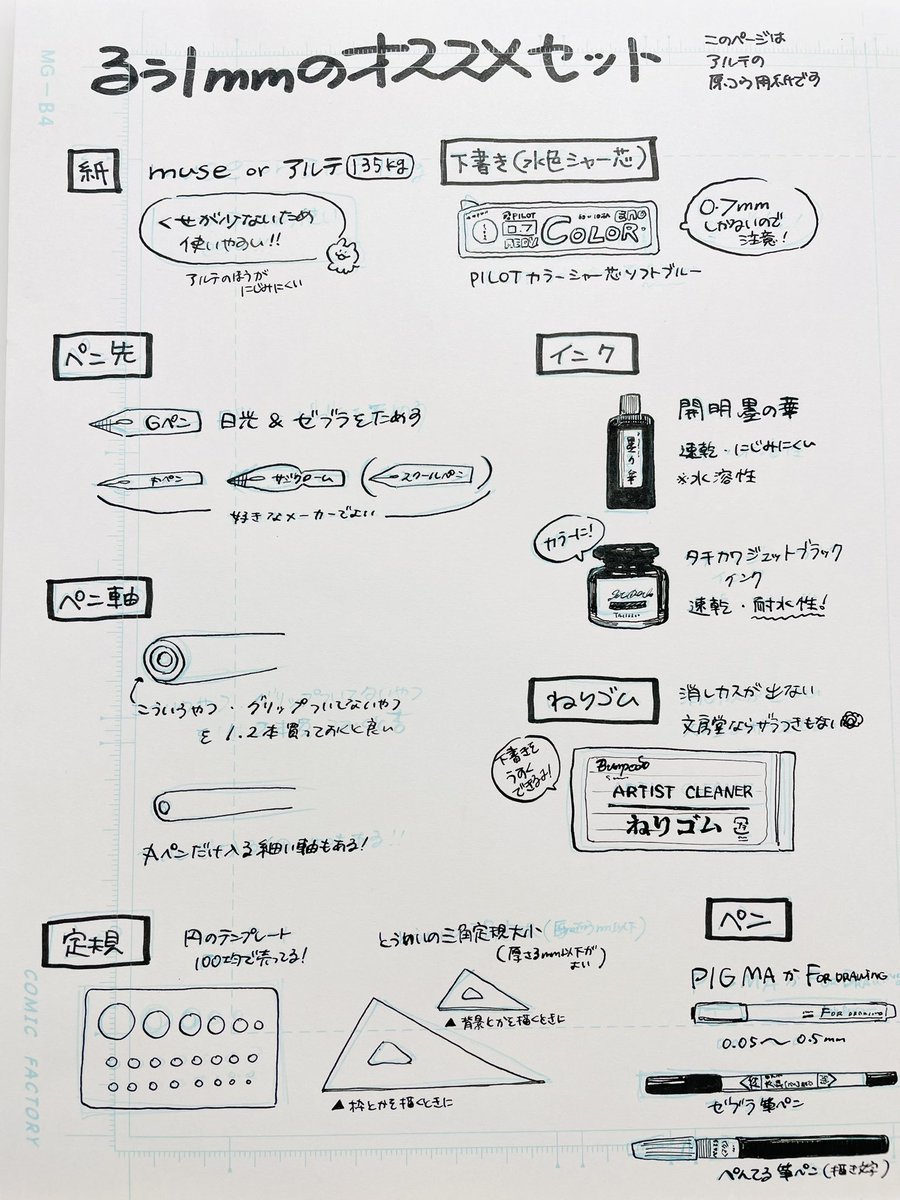 るぅ1mmのオススメセット
このページは
アルテの
原コウ用紙です
MG-B4
紙
muse or アルテ 135kg
くせが少ないため
使いやすい!!
アルテのほうが
にじみにくい
下書き(水色シャー芯)
PILOT
0.7
ENO
COLOR
0.7mm
しかないので
注意!
PILOTカラーシャー芯ソフトブルー
ペン先
Gペン
日光 & ゼブラをためす
丸ペン
サジクローム
(スクールペン)
好きなメーカーでよい
インク
墨の華
開明墨の華
速乾・にじみにくい
※水溶性
カラーに!
タチカワジェットブラック
インク
速乾・耐水性!
ペン軸
こういうやつ・グリップついてないやつ
を1.2本買っておくと良い
丸ペンだけ入る細い軸もある!
ねりゴム
消しカスが出ない
文房堂ならザラつきもない
下書きを
うすく
できるよ!
Bumpodo
ARTIST CLEANER
ねりゴム
定規
円のテンプレート
100均で売ってる!
とうめいの三角定規大小
(厚さ3mm以下が
よい)
▲背景とかを描くときに
▲枠とかを描くときに
ペン
PIGMAか FOR DRAWING
FOR DRAWING
0.05〜0.5mm
ゼブラ筆ペン
ぺんてる筆ペン(描き文字)
COMIC FACTORY